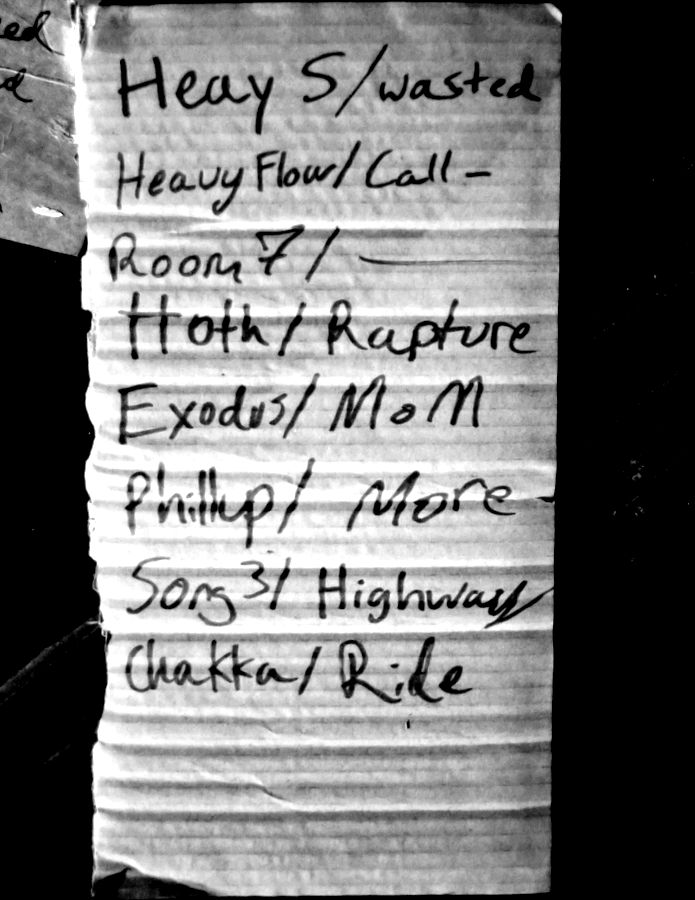 ed
d
Heavy S/wasted
Heavy Flow/Call -
Room 7/ —
Hoth/Rapture
Exodus/MoM
Phillup/ More -
Song 3/ Highway
Chakka/ Ride